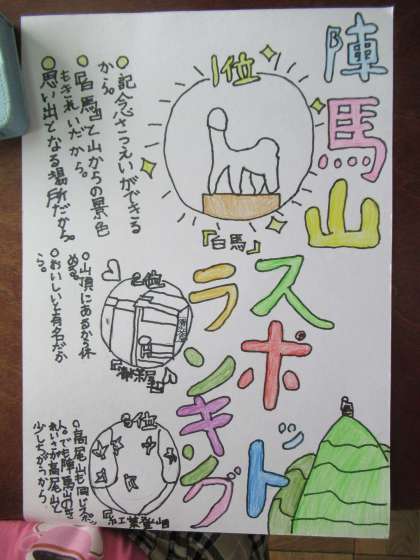 陣馬山
スポット
ランキング
1位
『白馬』
○記念さつえいができる
から。
○『白馬』と山からの景色
もきれいだから。
○思い出となる場所だから。
2位
○山頂にあるから休
める。
○おいしいと有名だか
ら。
3位
『紅葉登山』
○高尾山も同じ
でも陣馬山の
高尾山と
少しちがうから。